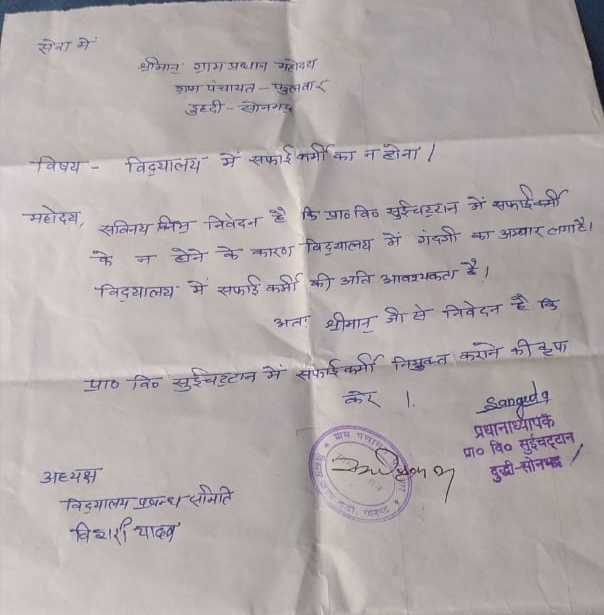 सेवा में
श्रीमान् ग्राम प्रधान महोदय
ग्राम पंचायत - फुलवार
दुद्दी - सोनभद्र
विषय - विद्यालय में सफाई कर्मी का न होना।
महोदय, सविनय निवेदन है कि प्रा० वि० सुईचट्टान में सफाई कर्मी
के न होने के कारण विद्यालय में गंदगी का अम्बार लगा है।
विद्यालय में सफाई कर्मी की अति आवश्यकता है।
अतः श्रीमान् जी से निवेदन है कि
प्रा० वि० सुईचट्टान में सफाई कर्मी नियुक्त कराने की कृपा
करे ।
Sangeeta
प्रधानाध्यापक
प्रा० वि० सुईचट्टान
दुद्धी-सोनभद्र
ग्राम पंचायत
अध्यक्ष
विद्यालय प्रबन्ध समिति
यादव